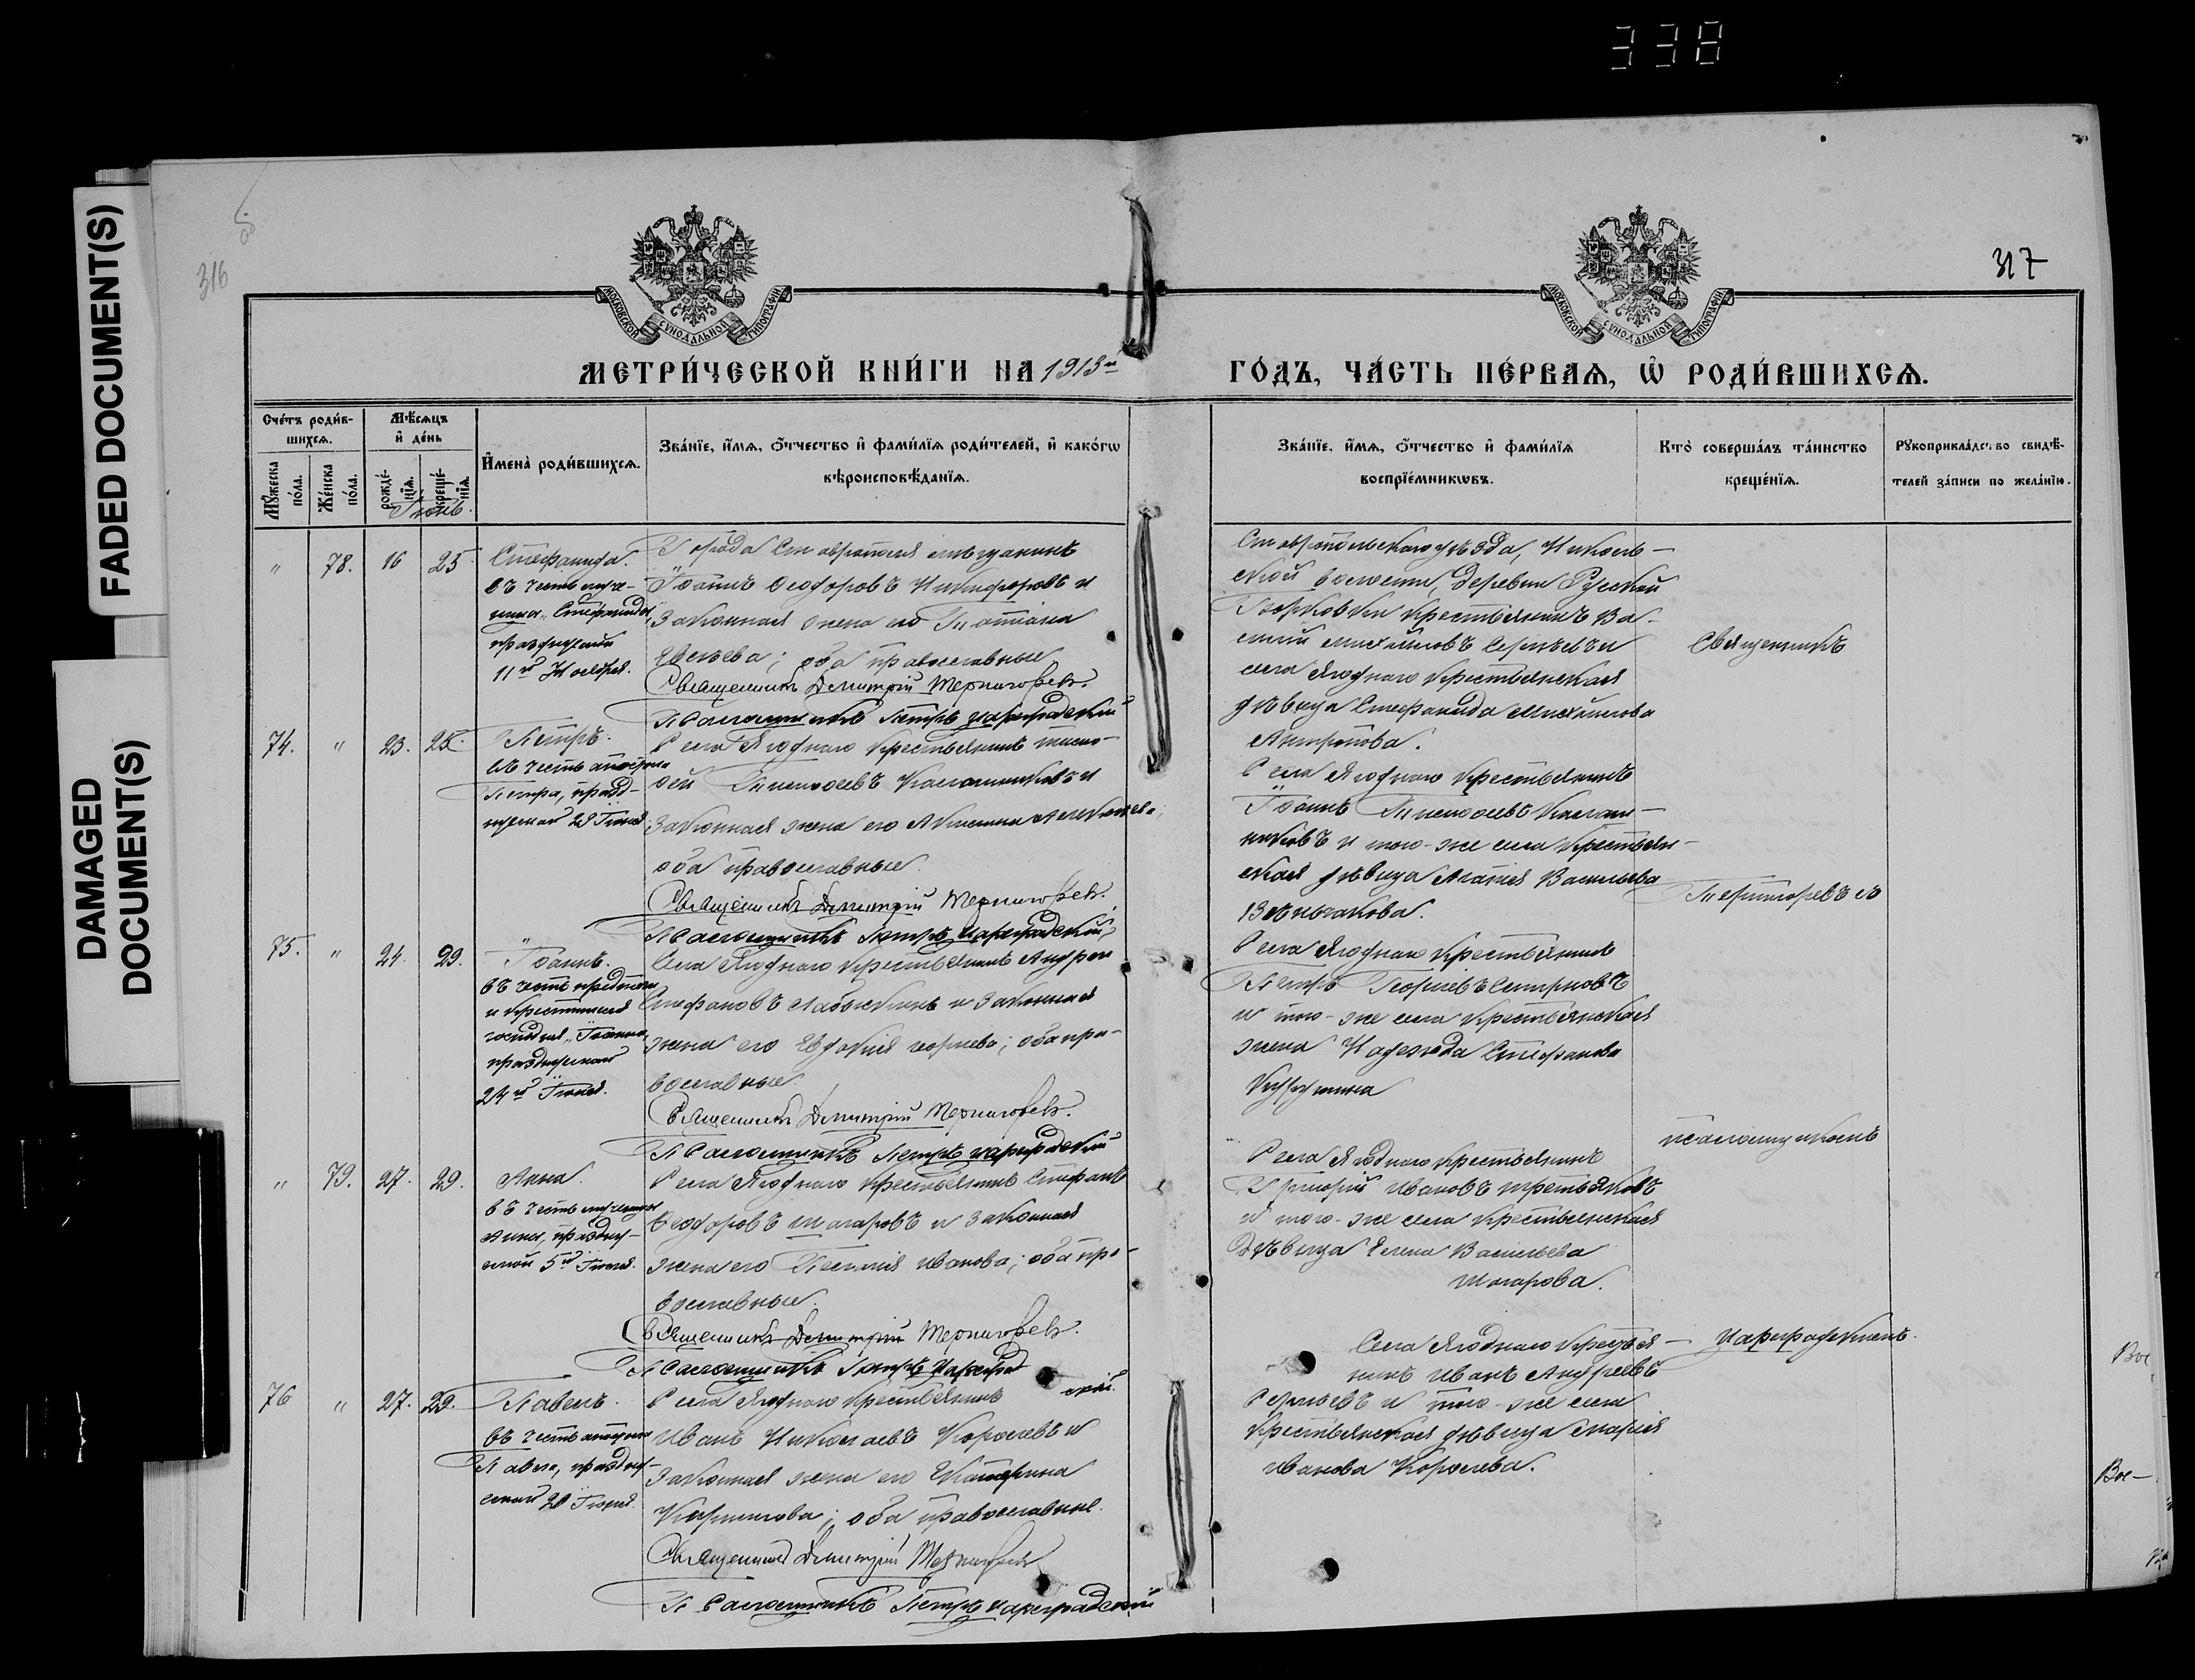 338
FADED DOCUMENT(S)
DAMAGED DOCUMENT(S)
316
об.
317
МОСКОВСКОЙ СУНОДАЛЬНОЙ ТИПОГРАФІИ
МОСКОВСКОЙ СУНОДАЛЬНОЙ ТИПОГРАФІИ
МЕТРИ́ЧЕСКОЙ КНИ́ГИ НА 1913й ГО́ДЪ, ЧА́СТЬ ПЕ́РВАѦ, Ѡ РОДИ́ВШИХСѦ.
Сче́тъ роди́вшихсѧ.
Мꙋ́жеска по́ла.
Же́нска по́ла.
Мѣ́сѧцъ и҆ де́нь
рожде́нїѧ.
креще́нїѧ.
Имена̀ роди́вшихсѧ.
Зва́нїе, и҆́мѧ, ѻ҆́тчество и҆ фами́лїѧ роди́телей, и҆ како́гѡ вѣроисповѣ́данїѧ.
Зва́нїе, и҆́мѧ, ѻ҆́тчество и҆ фами́лїѧ воспрїе́мникѡвъ.
Кто̀ соверша́лъ та́инство креще́нїѧ.
Рꙋкоприкла́дство свидѣ́телей за́писи по жела́нїю.
Іюнь.
" 78. 16 25
Стефанида.
въ честь муче-
ницы Стефаниды,
празднуемой
11го Ноября.
Города Ставрополя мѣщанинъ
Іоаннъ Ѳеодоровъ Никифоровъ и
законная жена его Татіана
оба православные
Священникъ Димитрій Терниговревъ.
Псаломщикъ Петръ Цареградскій
Ставропольскаго уѣзда, Николь-
ской волости, деревни Русской
крестьянинъ Ва-
силій Михайловъ Сергѣевъ и
села Ягоднаго крестьянская
дѣвица Стефанида Михайлова
Антропова.
74. " 23. 25.
Петръ.
въ честь апостола
Петра, празд-
нуемаго 29 Іюня
Села Ягоднаго крестьянинъ Тимо-
ѳей Тимоѳеевъ Калашниковъ и
законная жена его Акилина Алексѣева;
оба православные
Священникъ Димитрій
Псаломщикъ Петръ Цареградскій
Села Ягоднаго крестьянинъ
Іоаннъ Тимоѳеевъ Калаш-
никовъ и того-же села крестьян-
ская дѣвица Агапія Васильева
75. " 24. 29.
Іоаннъ.
въ честь предтечи
и крестителя
Господня Іоанна,
празднуемаго
24го Іюня.
Села Ягоднаго крестьянинъ Андрей
Стефановъ и законная
жена его Евдокія оба пра-
вославные.
Священникъ Димитрій
Псаломщикъ Петръ Цареградскій
Села Ягоднаго крестьянинъ
Петръ Георгіевъ Смирновъ
и того-же села крестьянская
жена Надежда Стефанова
" 79. 27. 29.
Анна.
въ честь мученицы
Анны, празднуе-
мой 5го
Села Ягоднаго крестьянинъ Стефанъ
Ѳеодоровъ Шагаровъ и законная
жена его Иванова; оба пра-
вославные.
Священникъ Димитрій
Псаломщикъ Петръ Цареградскій.
Села Ягоднаго крестьянинъ
Григорій Ивановъ Третьяковъ
и того-же села крестьянская
дѣвица Елена Васильева
Шагарова.
76 " 27. 29.
Павелъ.
въ честь апостола
Павла, празднуе-
маго 29 Іюня.
Села Ягоднаго крестьянинъ
Иванъ Николаевъ Королевъ и
законная жена его Екатерина
оба православные.
Священникъ Димитрій
Псаломщикъ Петръ Цареградскій
Села Ягоднаго кресть-
нинъ Иванъ Андреевъ
и того-же села
крестьянская дѣвица Марія
Иванова Королева.
Священникъ
съ
псаломщикомъ
Цареградскимъ.
Вос
Вос-